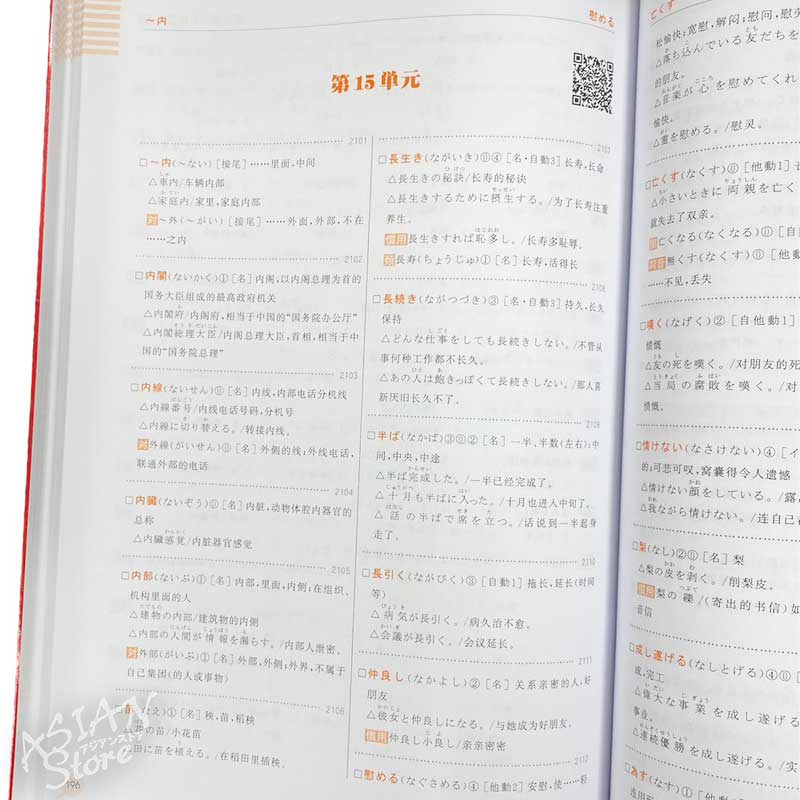 ～内
慰める
第15单元
2101
□～内(～ない)[接尾]……里面,中间
△車内/车辆内部
△家庭内/家里,家庭内部
対～外(～がい)[接尾]……外面,外部,不在
……之内
2102
□内閣(ないかく)①[名]内阁,以内阁总理为首的
国务大臣组成的最高政府机关
△内閣府/内阁府,相当于中国的“国务院办公厅”
△内閣総理大臣/内阁总理大臣,首相,相当于中
国的“国务院总理”
2103
□内線(ないせん)⓪[名]内线,内部电话分机线
△内線番号/内线电话号码,分机号
△内線に切り替える。/转接内线。
対外線(がいせん)⓪[名]外侧的线;外线电话,
联通外部的电话
2104
□内臓(ないぞう)⓪[名]内脏,动物体腔内器官的
总称
△内臓感覚/内脏器官感觉
2105
□内部(ないぶ)①[名]内部,里面,内侧;在组织、
机构里面的人
△建物の内部/建筑物的内侧
△内部の人間が情報を漏らす。/内部人泄密。
対外部(がいぶ)①[名]外部,外侧;外界,不属于
自己集团(的人或事物)
2106
苗(なえ)①[名]秧,苗,稻秧
花の苗/小花苗
田に苗を植える。/在稻田里插秧。
196
2107
□長生き(ながいき)⓪④[名·自動3]长寿,长命
△長生きの秘訣/长寿的秘诀
△長生きするために摂生する。/为了长寿注重
养生。
慣用長生きすれば恥多し。/长寿多耻辱。
類長寿(ちょうじゅ)①[名]长寿,活得长
2108
□長続き(ながつづき)③[名·自動3]持久,长久
保持
△どんな仕事をしても長続きしない。/不管从
事何种工作都不长久。
△あの人は飽きっぽくて長続きしない。/那人喜
新厌旧长久不了。
2109
□半ば(なかば)③⓪②[名]一半,半数(左右);中
间,中央,中途
△半ば完成した。/一半已经完成了。
△十月も半ばに入った。/十月也进入中旬了。
△話の半ばで席を立つ。/话说到一半起身
走了。
2110
□長引く(ながびく)③[自動1]拖长,延长(时间
等)
△病気が長引く。/病久治不愈。
△会議が長引く。/会议延长。
2111
□仲良し(なかよし)②[名]关系亲密的人,好
朋友
△彼女と仲良しになる。/与她成为好朋友。
慣用仲良し小良し/亲亲密密
□慰める(なぐさめる)④[他動2]安慰,使……轻
亡くす
松愉快;宽慰,解闷;慰问,慰劳
△落ち込んでいる友だちを
的朋友。
△音楽が心を慰めてくれ
愉快。
△霊を慰める。/慰灵。
□亡くす(なくす)⓪[他動1]
△小さいときに両親を亡く
就失去了双亲。
亡くなる(なくなる)⓪[自
無くす(なくす)⓪[他動
……不见,丢失
□嘆く(なげく)②[自他動1]
愤慨
△友の死を嘆く。/对朋友的死
△当局の腐敗を嘆く。/对
愤慨。
□情けない(なさけない)④[イ
的;可悲可叹,窝囊得令人遗憾
△情けない顔をしている。/露
△我ながら情けない。/连自己
□梨(なし)②⓪[名]梨
△梨の皮を剥く。/削梨皮。
慣用梨の礫/(寄出的书信)如
音信
□成し遂げる(なしとげる)④⓪
成,完工
△偉大な事業を成し遂げる
事业。
△連続優勝を成し遂げる。/实
□為す(なす)①[他動1]
ASIAN
アジアンストア
Store